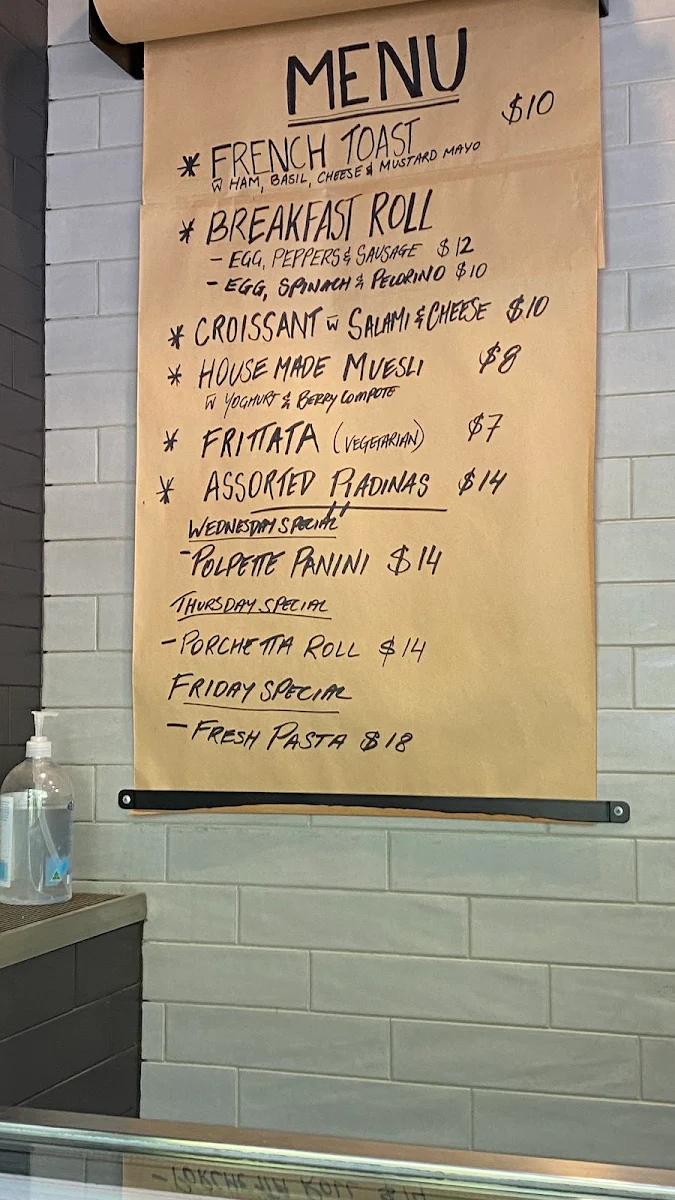 MENU
* FRENCH TOAST $10
W HAM, BASIL, CHEESE & MUSTARD MAYO
* BREAKFAST ROLL
- EGG, PEPPERS & SAUSAGE $12
- EGG, SPINACH & PECORINO $10
* CROISSANT W SALAMI & CHEESE $10
* HOUSE MADE MUESLI $8
W YOGHURT & BERRY COMPOTE
* FRITTATA (VEGETARIAN) $7
* ASSORTED PIADINAS $14
WEDNESDAY SPECIAL
- POLPETTE PANINI $14
THURSDAY SPECIAL
- PORCHETTA ROLL $14
FRIDAY SPECIAL
- FRESH PASTA $18
- PORCHETTA ROLL $14